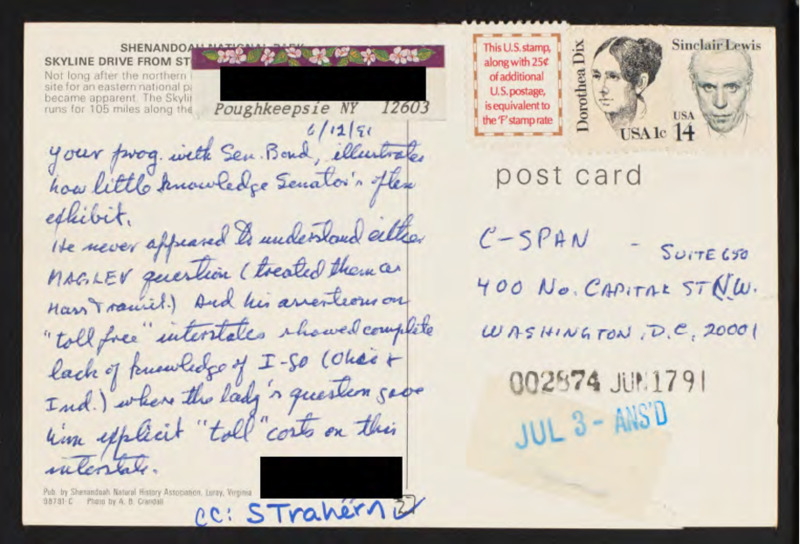 SHENANDOAH NATIONAL PARK
SKYLINE DRIVE FROM ST
Not long after the northern
site for an eastern national pa
became apparent. The Skyli
runs for 105 miles along the
Poughkeepsie NY 12603
6/12/91
your prog. with Sen. Bond, illustrates
how little knowledge Senator's often
exhibit.
He never appeared to understand either
MAGLEV question (treated them as
Mass Transit.) And his assertions on
"toll free" interstates showed complete
lack of knowledge of I-80 (Ohio &
Ind.) where the lady's question gave
him explicit "toll" costs on this
interstate.
Pub. by Shenandoah Natural History Association, Luray, Virginia
Photo by A. B. Crandall
cc: STrahern
This U.S. stamp,
along with 25¢
of additional
U.S. postage,
is equivalent to
the 'F' stamp rate
Dorothea Dix
USA 1c
Sinclair Lewis
USA
14
post card
C-SPAN - SUITE 650
400 No. CAPITAL ST N.W.
WASHINGTON, D.C, 20001
002874 JUN 17 91
JUL 3 - ANS'D